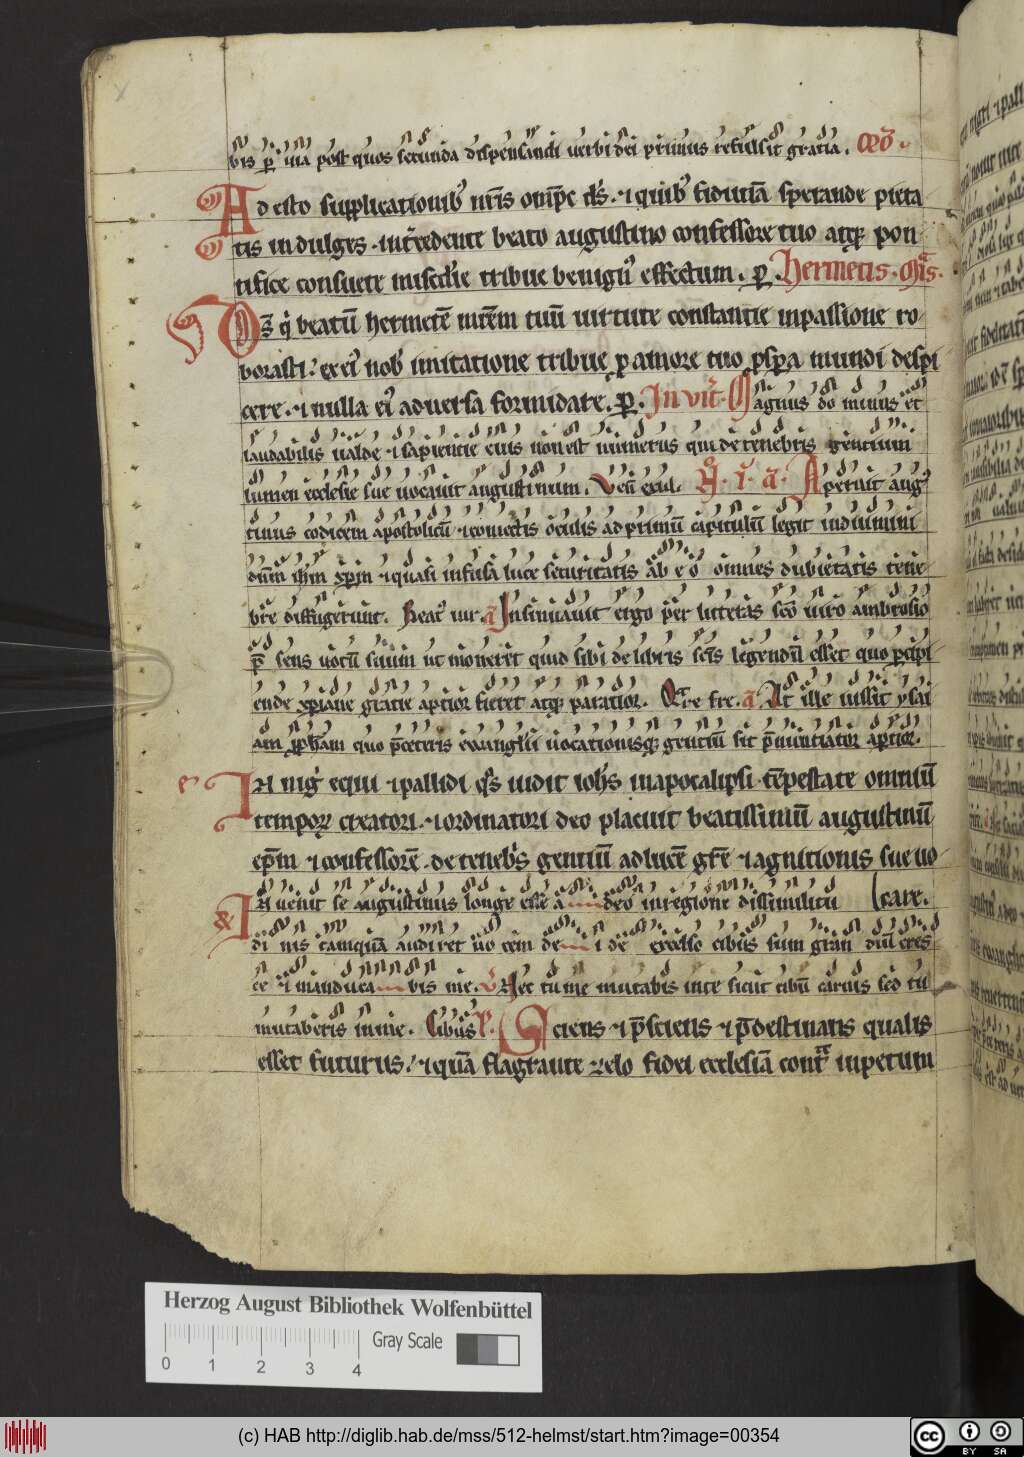 bis ꝑ uia post quos secunda dispensandi uerbi dei primus refulsit gratia. Coll̄.
Ad esto supplicationibꝰ nr̄is om̄ps ds̄. ⁊ quibꝰ fiduciā sperande pieta
tis indulges. int̄cedente beato augustino confessore tuo atqꝫ pon
tifice consuete misc̄die tribue benignū effectum. ꝑ. Hermetis. mr̄is.
Ds̄ q̇ beatū hermetē mr̄em tuū uirtute constantie inpassione ro
borasti. ex eiꝰ nob̄ imitatione tribue ꝑ amore tuo ꝓspa mundi despi
cere. ⁊ nulla eiꝰ aduersa formidare. ꝑ. In vit̄. Magnus do minus et
laudabilis ualde ⁊ sapientie eius non est numerus qui de tenebris gentium
lumen ecclesie sue uocauit augustinum. Ven̄ exul. N̄. i. a. Aperuit augꝰ
tinus codicem apostolicū ⁊ coniectis oculis ad primū capitulū legit induimini
dn̄m ih̄m xp̄m ⁊ quasi infusa luce securitatis ab e o omnes dubietatis tene
bre diffugerunt. Beatꝰ uir. a Insinuauit ergo ꝑ litteras sc̄o uiro ambrosio
p̄ sens uotū suum ut moneret quid sibi de libris sc̄is legendū esset quo ꝑcipi
ende xp̄iane gratie aptior fieret atqꝫ paratior. Qr̄e fre. a At ille iussit ysai
am ꝓph̄am quo p̄ceteris euangelii uocationisqꝫ gentiū sit p̄nuntiator aptior.
In nig̓ equi ⁊ pallidi q̄s uidit ioh̄s in apocalipsi tēpestate omniū
temporꝝ creatori. ⁊ ordinatori deo placuit beatissimū augustinū
ep̄m ⁊ confessorē. de tenebꝰs gentiū ad lucē gr̄e ⁊ agnitionis sue uo
In uenit se augustinus longe esse a deo in regione dissimilitu [care.
di nis tamquā audiret uo cem de i de excelso cibus sum gran diū cres
ce ⁊ manduca bis me. V̄ Nec tu me mutabis in te sicut cibū carnis sed tu
mutaberis in me. Cibus. Sciens ⁊ p̄sciens ⁊ p̄destinans qualis
esset futurus. ⁊ quā flagrante zelo fidei ecclesiā contra inpetum
Herzog August Bibliothek Wolfenbüttel
Gray Scale
0 1 2 3 4
(c) HAB http://diglib.hab.de/mss/512-helmst/start.htm?image=00354
cc BY SA